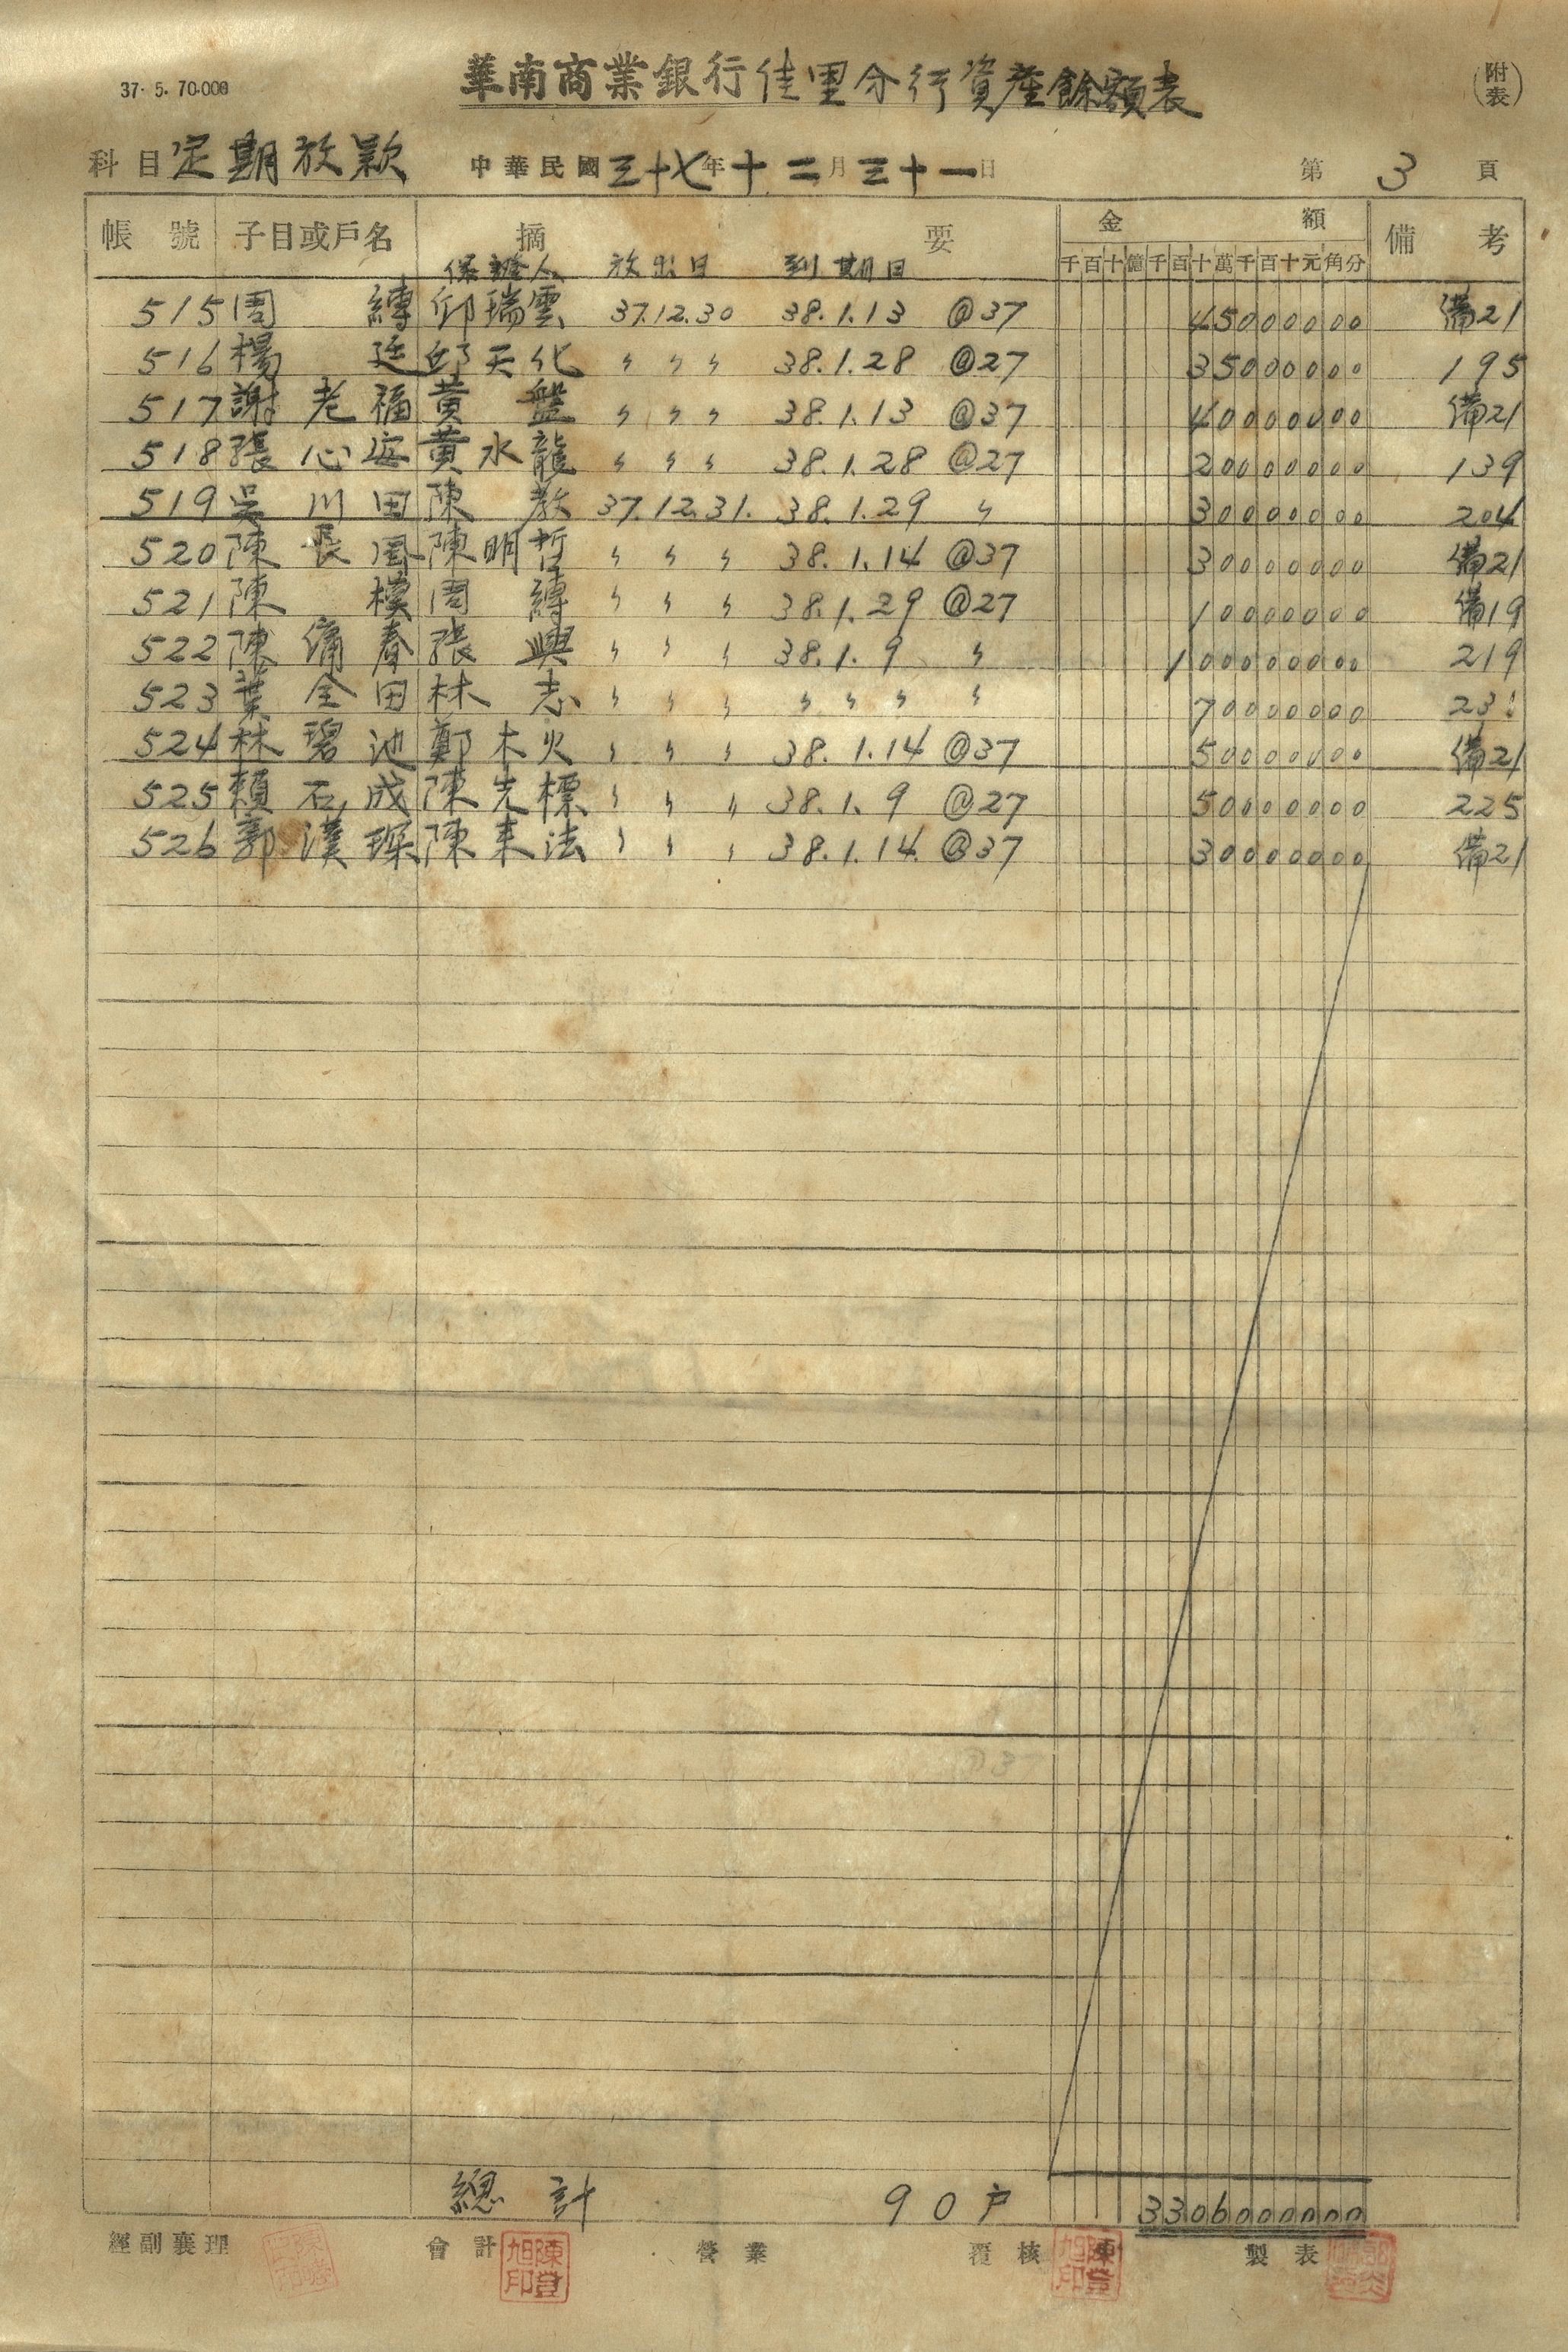 37. 5. 70.000
華南商業銀行佳里分行資產餘額表
(附表)
科目 定期放款 中華民國三十七年十二月三十一日 第 3 頁
帳號 子目或戶名 摘要 金額 備考
保證人 放出日 到期日 千百十億千百十萬千百十元角分
515 周縛 邱瑞雲 37.12.30 38.1.13 @37 45000000 備21
516 楊廷 邱天化 〃 〃 〃 38.1.28 @27 35000000 195
517 謝老福 黄盤 〃 〃 〃 38.1.13 @37 40000000 備21
518 張心安 黄水龍 〃 〃 〃 38.1.28 @27 20000000 139
519 吳川田 陳教 37.12.31. 38.1.29 〃 30000000 204
520 陳長 陳明哲 〃 〃 〃 38.1.14 @37 30000000 備21
521 陳樸 周縛 〃 〃 〃 38.1.29 @27 10000000 備19
522 陳春 張興 〃 〃 〃 38.1.9 〃 100000000 219
523 葉全田 林志 〃 〃 〃 〃 〃 〃 〃 70000000
524 林碧池 鄭木火 〃 〃 〃 38.1.14 @37 50000000 備21
525 賴石成 陳先標 〃 〃 〃 38.1.9 @27 50000000 225
526 郭漢琛 陳来法 〃 〃 〃 38.1.14 @37 30000000 備21
總計 90戶 3306000000
經副襄理 會計 陳登旭印 營業 覆核 陳登旭印 製表